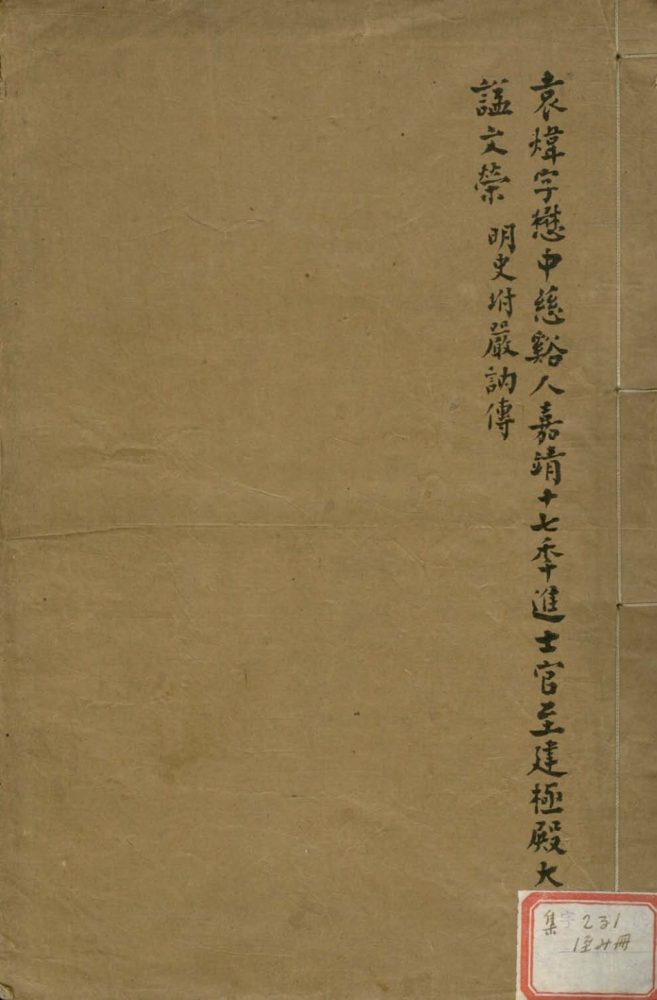 袁煒字懋中慈谿人嘉靖十七秊進士官至建極殿大
諡文榮 明史坿嚴訥傳
集字231
1至4冊